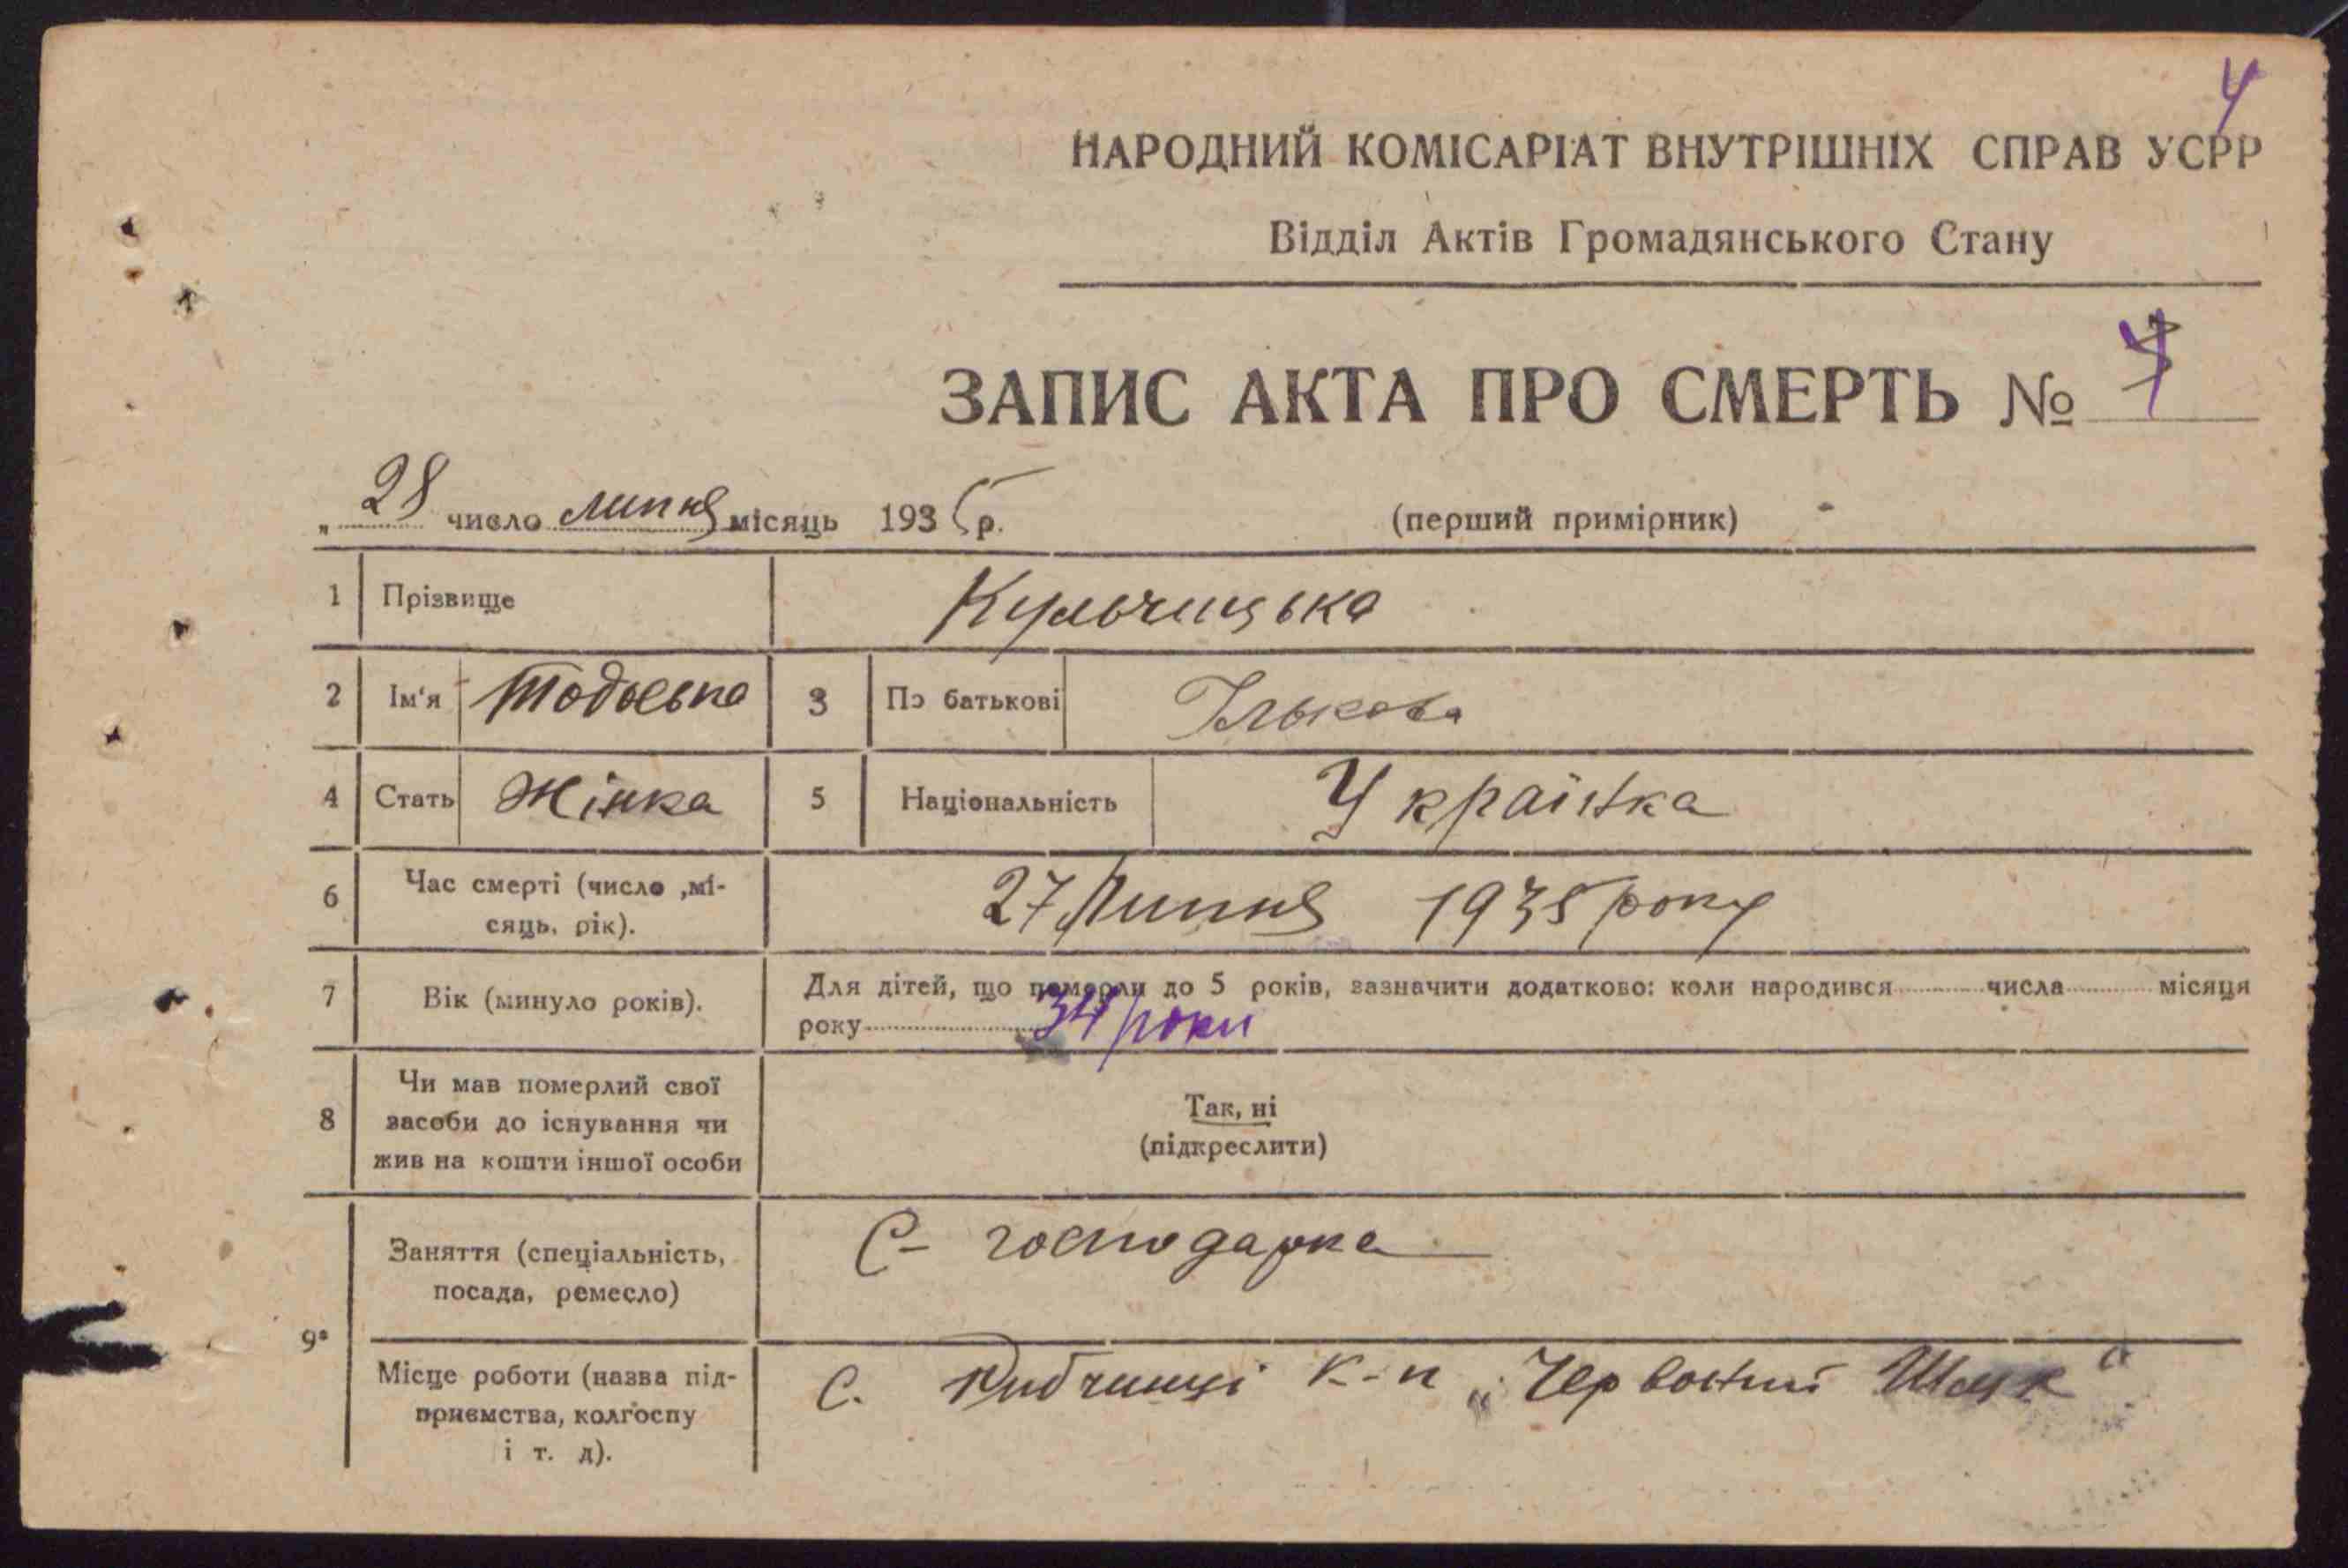 4
НАРОДНИЙ КОМІСАРІАТ ВНУТРІШНІХ СПРАВ УСРР
Відділ Актів Громадянського Стану
ЗАПИС АКТА ПРО СМЕРТЬ №
„ 28 число липня місяць 1935 р.
(перший примірник)
1 Прізвище Кульчицька
2 Ім'я Тодоська 3 По батькові Ількова
4 Стать Жінка 5 Національність Українка
6 Час смерті (число ,мі-
сяць, рік). 27 Липня 1935 року
7 Вік (минуло років). Для дітей, що померли до 5 років, зазначити додатково: коли народився числа місяця
року 34 роки
8 Чи мав померлий свої
засоби до існування чи
жив на кошти іншої особи
Так, ні
(підкреслити)
9а Заняття (спеціальність,
посада, ремесло)
С- господарка
Місце роботи (назва під-
приємства, колгоспу
і т. д).
С. к-п „Червоний Шлях"